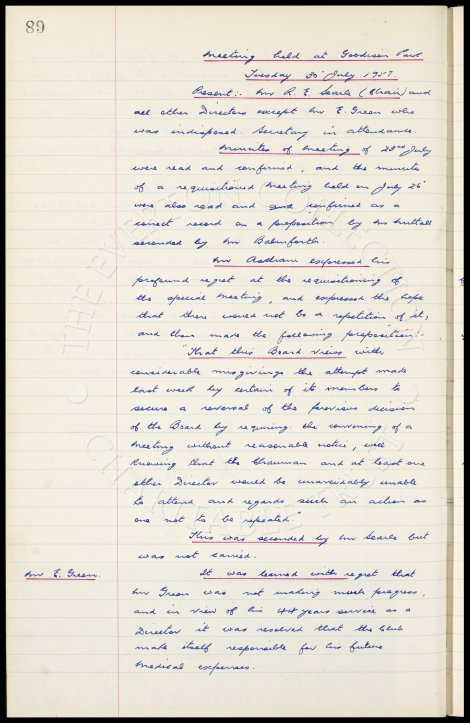 89
Meeting held at Goodison Park
Tuesday 30 July 1957.
Present:- Mr R. E. Searle (Chair) and
all other Directors except Mr E. Green who
was indisposed. Secretary in attendance.
Minutes of Meeting of 23rd July
were read and confirmed, and the minutes
of a requisitioned Meeting held on July 26
were also read and and confirmed as a
correct record on a proposition by Mr Nuttall
seconded by Mr Balmforth.
Mr expressed his
profound regret at the requisitioning of
the special Meeting, and expressed the hope
that there would not be a repetition of it,
and then made the following proposition:-
"That this Board views with
considerable misgivings the attempt made
last week by certain of its members to
secure a reversal of the previous decision
of the Board by requiring the convening of a
Meeting without reasonable notice, well
knowing that the Chairman and at least one
other Director would be unavoidably unable
to attend and regards such an action as
one not to be repeated."
This was seconded by Mr Searle but
was not carried.
Mr E. Green.
It was learned with regret that
Mr Green was not making much progress,
and in view of his 44 years service as a
Director it was resolved that the Club
make itself responsible for his future
medical expenses.